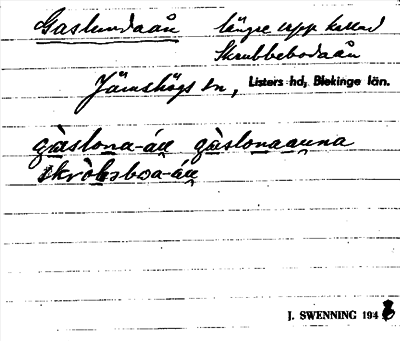 Gaslundaån längre upp kallad
Skrubbebodaån
Jämshögs sn, Listers hd, Blekinge län.
gàslona-án gàslonaanna
skròbsboa-án
J. SWENNING 194